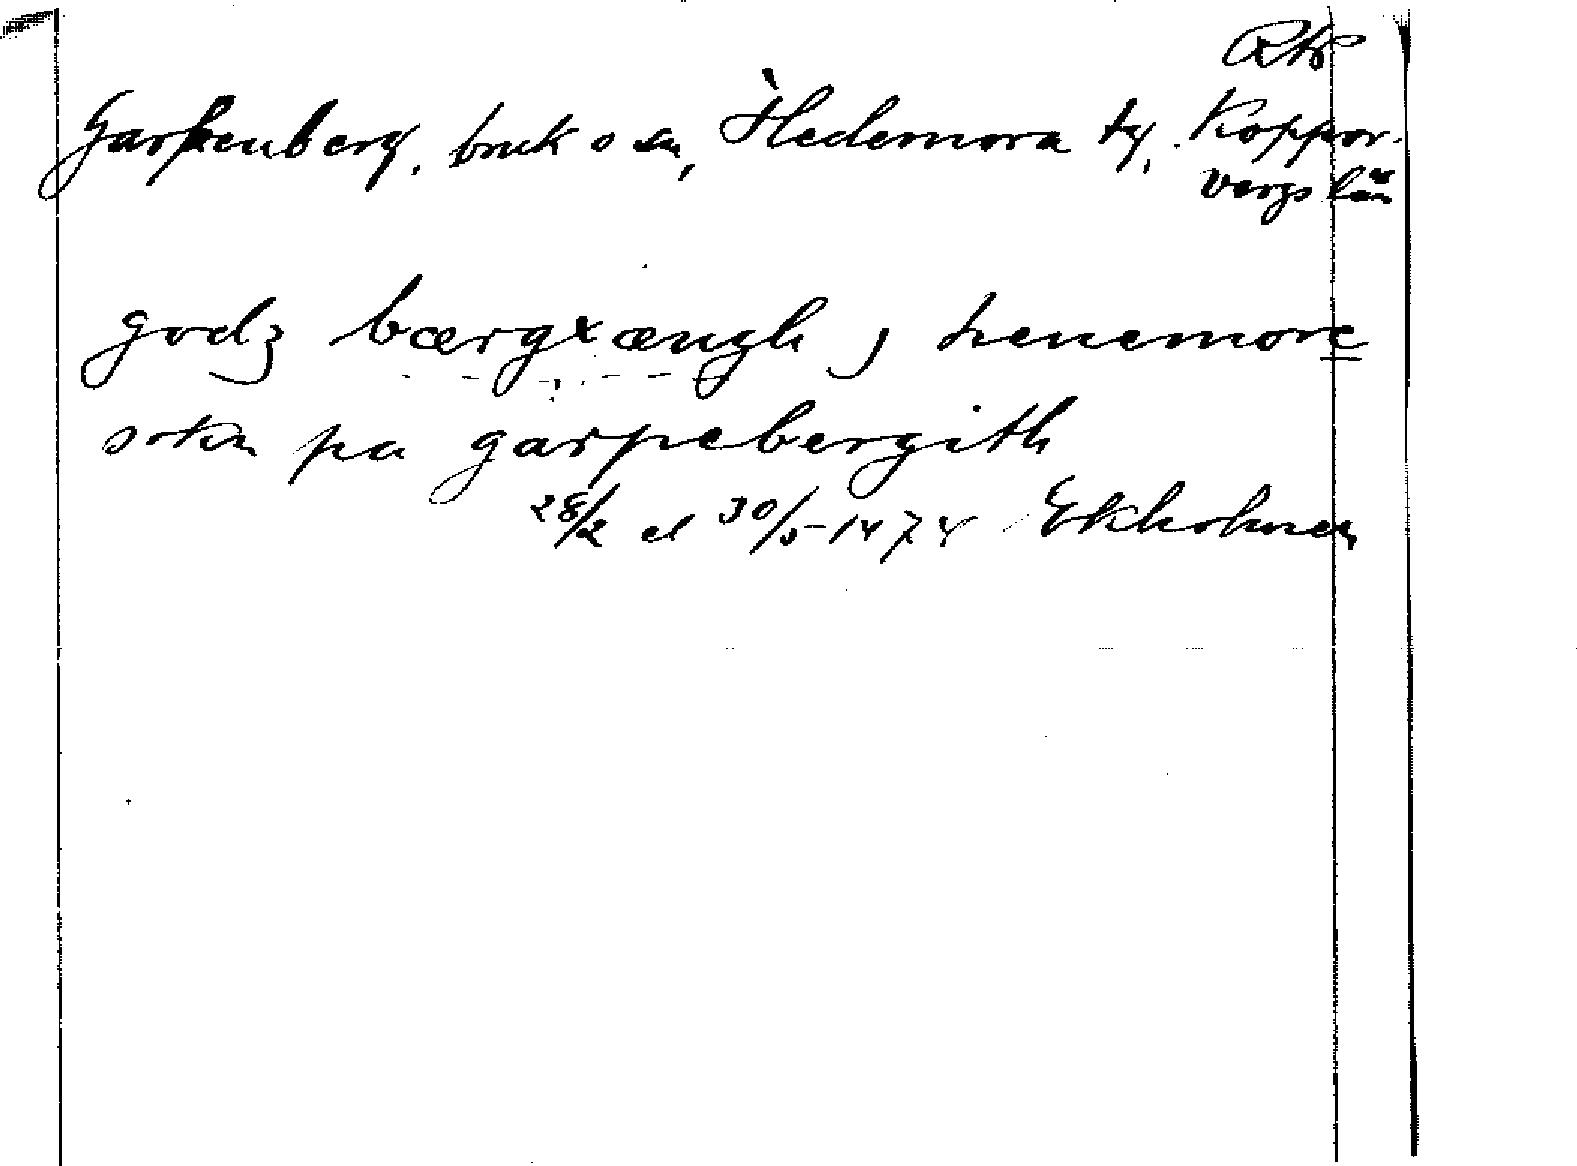 RK
Garpenberg, bruk o sn, Hedemora tg, Koppar-
bergs län
godz bærgxængh j henemore
sokn pa garpebergith
28/2 el 30/5 1474 Ekholmen